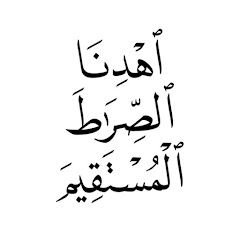 ٱهْدِنَا
ٱلصِّرَٰطَ
ٱلْمُسْتَقِيمَ